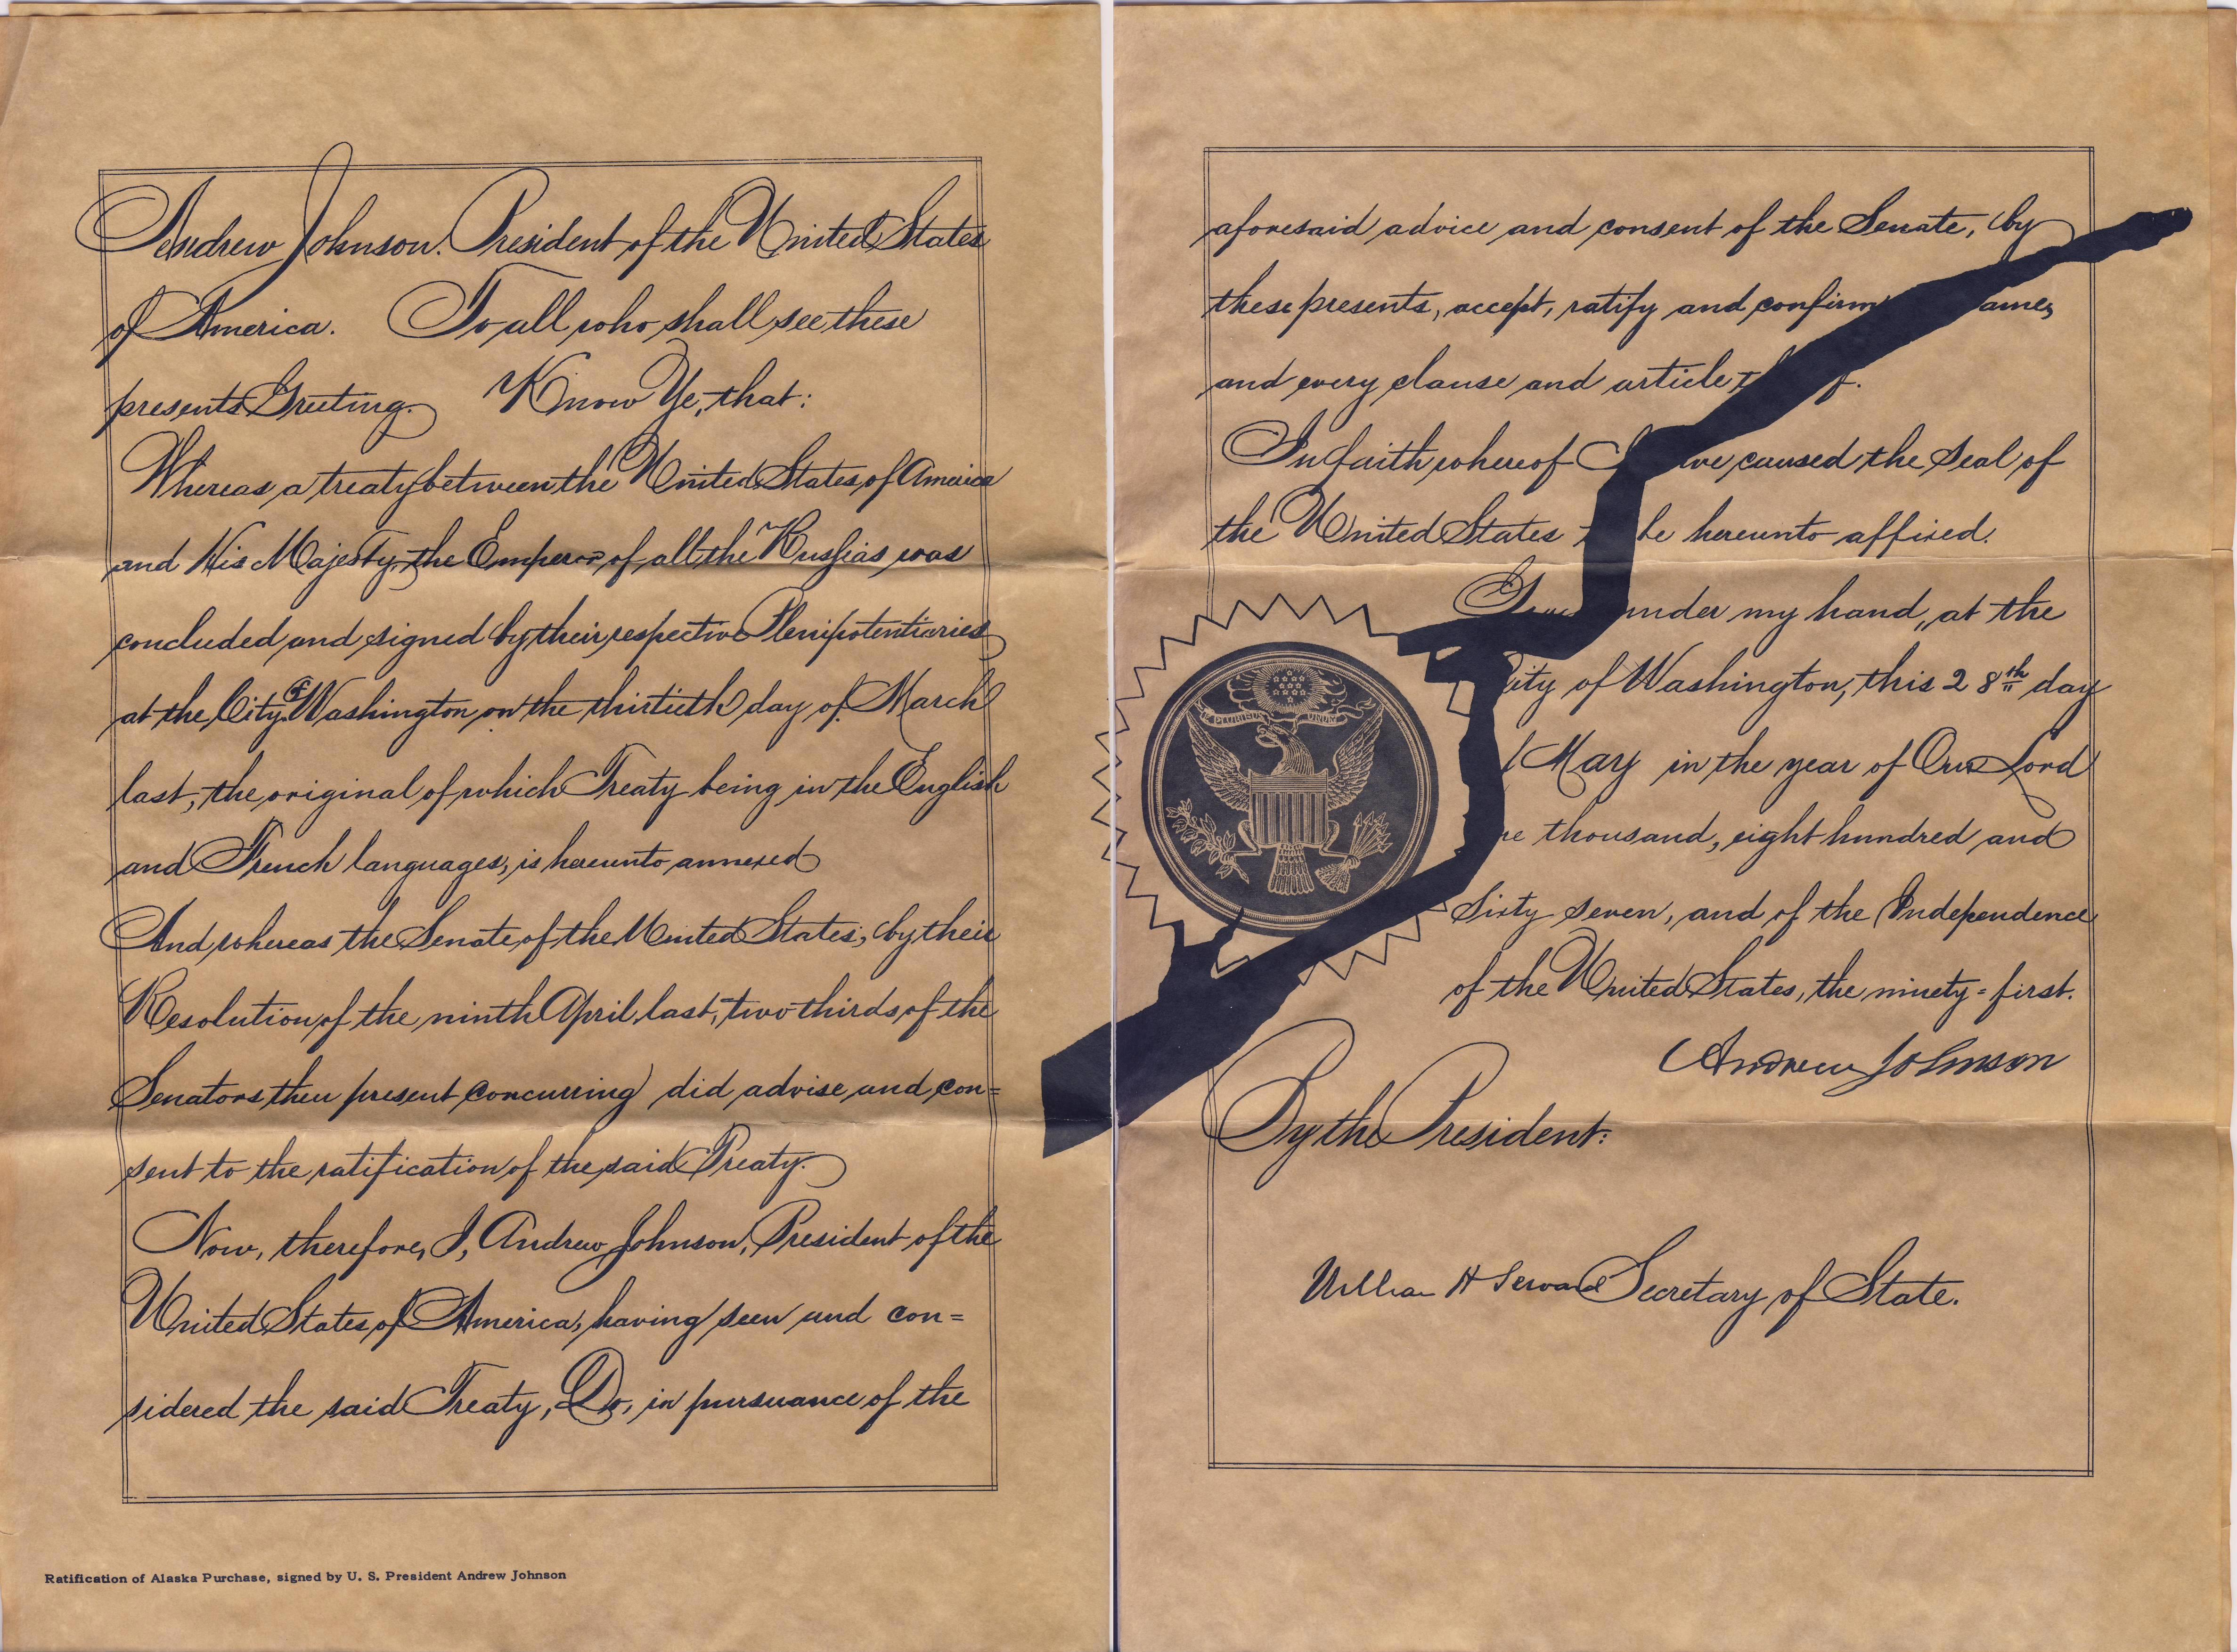 Andrew Johnson. President of the United States
of America. To all who shall see these
presents Greeting. Know Ye, that:
Whereas a treaty between the United States of America
and His Majesty the Emperor of all the Russias was
concluded and signed by their respective Plenipotentiaries
at the City of Washington, on the thirtieth day of March
last, the original of which Treaty being in the English
and French languages, is hereunto annexed
And whereas the Senate of the United States, by their
Resolution of the ninth April last, two thirds of the
Senators then present concurring) did advise and con=
sent to the ratification of the said Treaty.
Now, therefore, I, Andrew Johnson, President of the
United States of America, having seen and con=
sidered the said Treaty, Do, in pursuance of the
Ratification of Alaska Purchase, signed by U. S. President Andrew Johnson
aforesaid advice and consent of the Senate, by
these presents, accept, ratify and confirm ame,
and every clause and article f.
In faith whereof I ve caused the Seal of
the United States be hereunto affixed.
under my hand, at the
City of Washington, this 28th day
May in the year of Our Lord
ne thousand, eight hundred and
Sixty seven, and of the Independence
of the United States, the ninety=first.
E PLURIBUS UNUM
Andrew Johnson
By the President:
William H Seward Secretary of State.